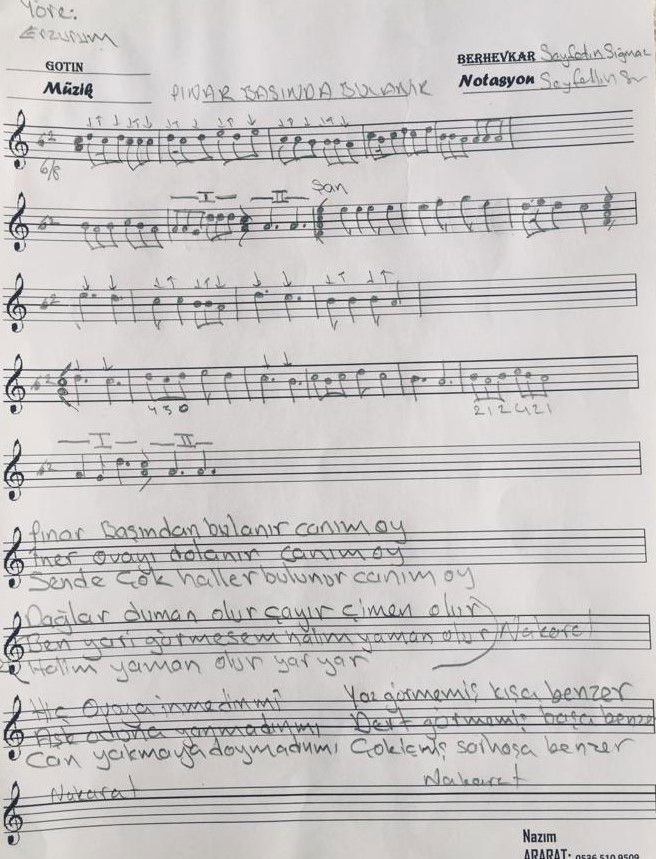 Yöre:
Erzurum
GOTIN
BERHEVKAR Seyfetin Sığmaz
Müzik
PINAR BAŞINDA BULANIK
Notasyon
6/8
I II San
4 3 0
2 1 2 4 2 1
I II
Pınar Başından bulanır canım oy
İner ovayı dolanır canım oy
Sende Çok haller bulunur canım oy
Dağlar duman olur çayır çimen olur
Ben yari görmesem halim yaman olur Nakarat
Halim yaman olur yar yar
Hiç Ovaya inmedinmi Yaz görmemiş kışa benzer
Aşk oduna yanmadınmı Dert görmemiş başa benzer
Can yakmaya doymadımı Çokiçmiş sarhoşa benzer
Nakarat Nakarat
Nazım
ARARAT: 0536 510 9509